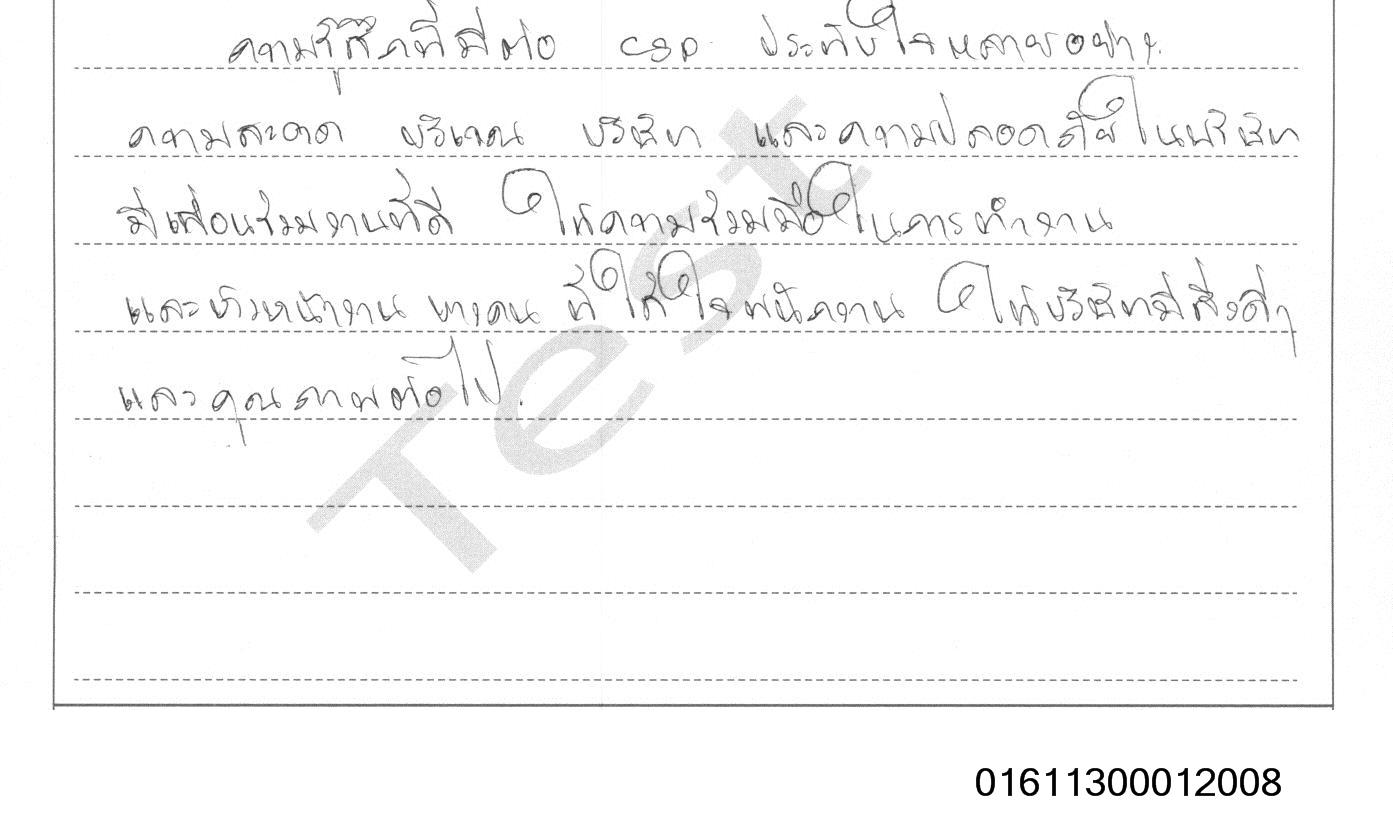 ความรู้สึกที่มีต่อ CSP ประทับใจหลายอย่าง
ความสะอาด บริเวณ บริษัท และความปลอดภัยในบริษัท
มีเพื่อนร่วมงานที่ดี ให้ความร่วมมือในการทำงาน
และหัวหน้างาน บางคน ที่ใส่ใจพนักงาน ให้บริษัทมีสิ่งดีๆ
และคุณภาพต่อไป.
Test
01611300012008